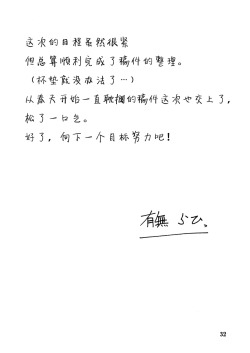 这次的日程虽然很紧
但总算顺利完成了稿件的整理。
（杯垫就没办法了…）
从春天开始一直耽搁的稿件这次也交上了，
松了一口气。
好了，向下一个目标努力吧！
有無 らひ。
32